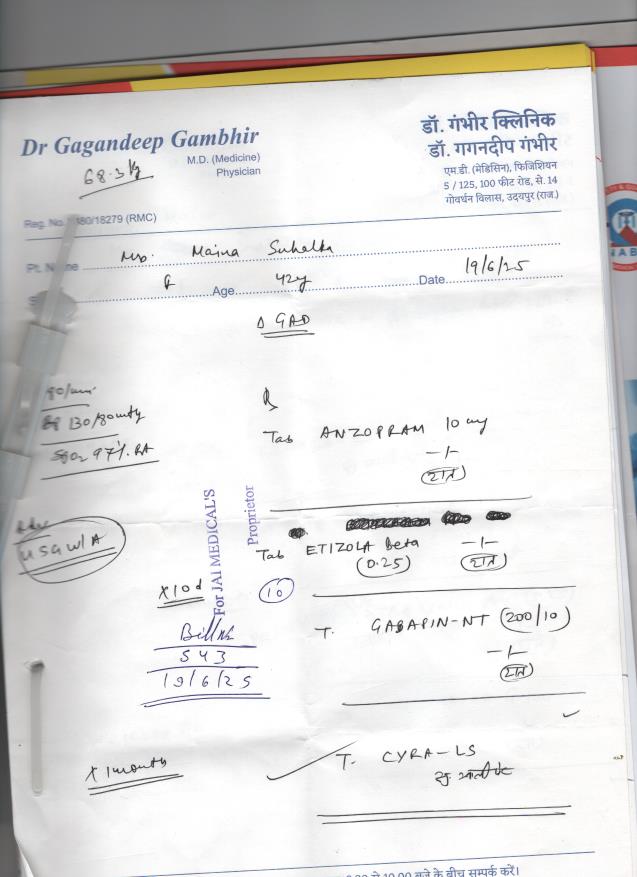 Dr Gagandeep Gambhir
M.D. (Medicine)
Physician
68.3 kg
डॉ. गंभीर क्लिनिक
डॉ. गगनदीप गंभीर
एम.डी. (मेडिसिन), फिजिशियन
5 / 125, 100 फीट रोड, से. 14
गोवर्धन विलास, उदयपुर (राज.)
Reg. No. 480/18279 (RMC)
Pt. Name Mrs. Maina Suhalka
Age 42y Date 19/6/25
Δ GAD
80/min
BP 130/80 mmHg
SpO2 97% RA
Tab ANZOPRAM 10 mg
-1-
रात
Adv
USG W/A
Tab ETIZOLA Beta -1-
(0.25) रात
x 10 d
10
For JAI MEDICAL'S
Proprietor
Bill No
543
19/6/25
T. GABAPIN-NT (200/10)
-1-
रात
x 1 month
T. CYRA-LS
10.00 बजे के बीच सम्पर्क करें।